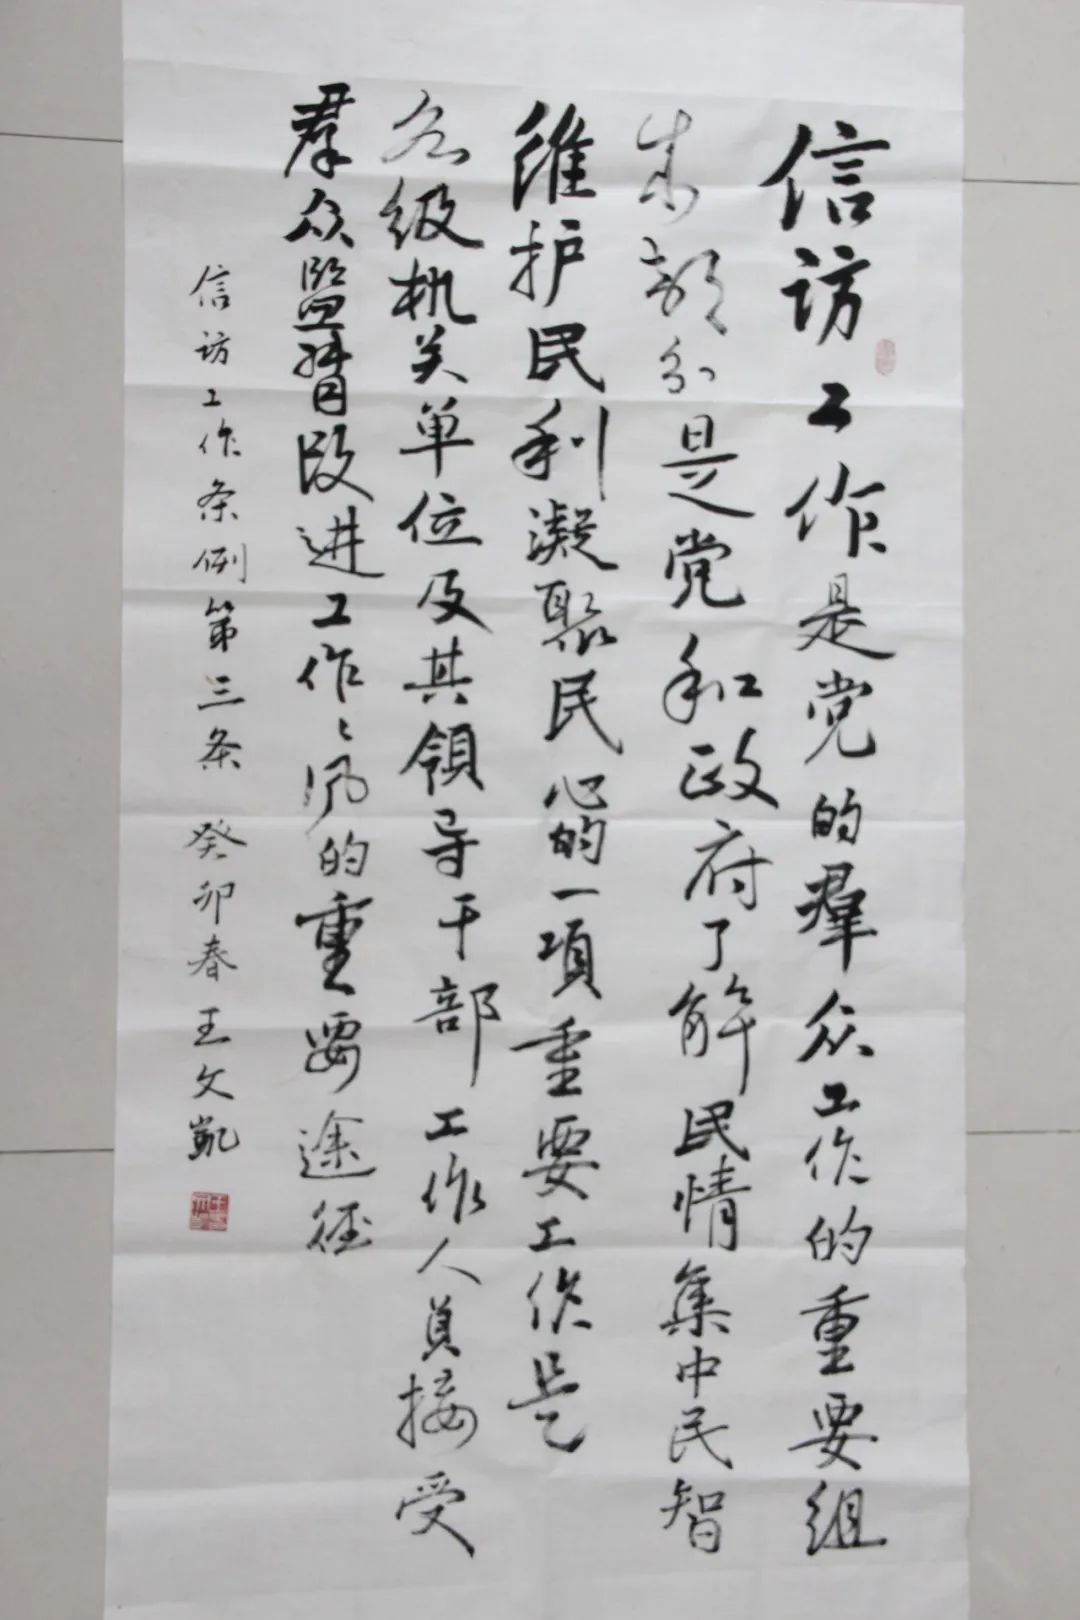 信访工作是党的群众工作的重要组
成部分是党和政府了解民情集中民智
维护民利凝聚民心的一项重要工作是
各级机关单位及其领导干部工作人员接受
群众监督改进工作々风的重要途径
信访工作条例第三条 癸卯春王文凯